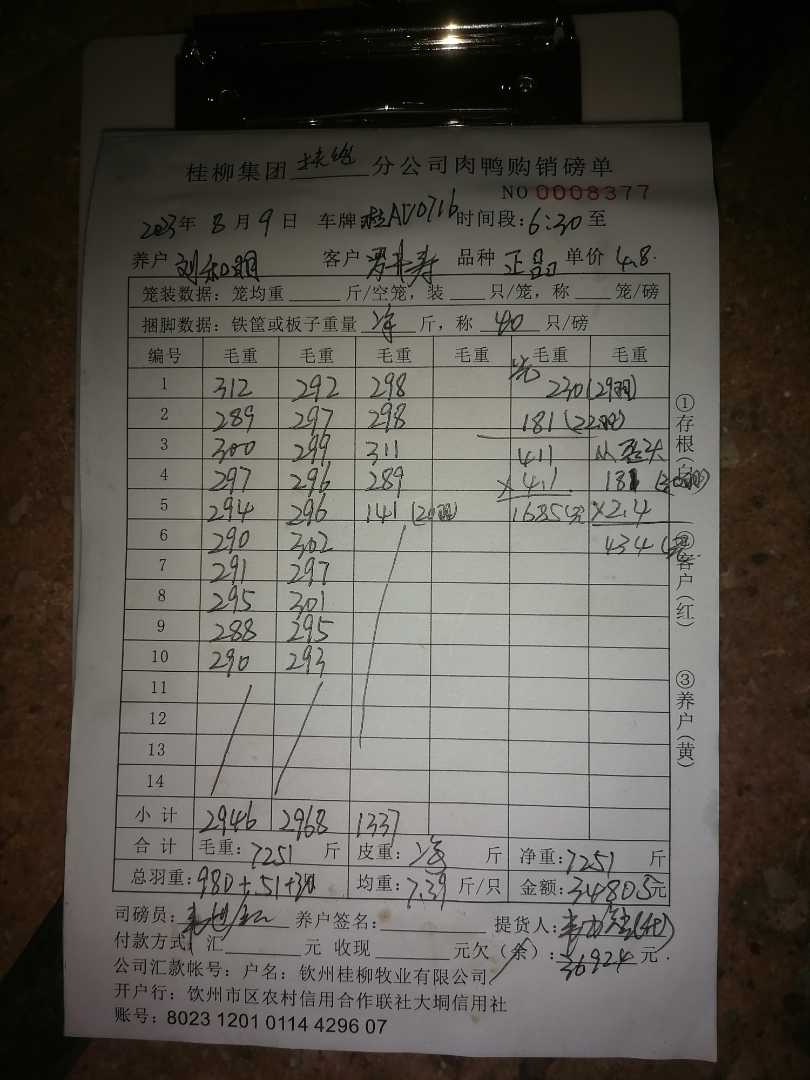 桂柳集团 扶绥 分公司肉鸭购销磅单
NO 0008377
2023年 8月 9日 车牌 桂AV0716 时间段:6:30至
养户 刘和明 客户 寿 品种 正品 单价 4.8
笼装数据: 笼均重 斤/空笼, 装 只/笼, 称 笼/磅
捆脚数据: 铁筐或板子重量 净 斤, 称 40 只/磅
编号 毛重 毛重 毛重 毛重 毛重 毛重
1 312 292 298 230 (29羽)
2 289 297 298 181 (22羽)
3 300 299 311 411
4 297 296 289 ×4.1 181
5 294 296 141 (20羽) 1685元 ×2.4
6 290 302 434
7 291 297
8 295 301
9 288 295
10 290 293
11
12
13
14
小计 2946 2968 1337
合计 毛重: 7251 斤 皮重: 净 斤 净重: 7251 斤
总羽重: 980+51+30 均重: 7.39 斤/只 金额: 34805元
司磅员: 养户签名: 提货人:
付款方式: 汇 元 收现 元欠(余): 36924 元
公司汇款帐号: 户名: 钦州桂柳牧业有限公司
开户行: 钦州市区农村信用合作联社大垌信用社
账号: 8023 1201 0114 4296 07
①存根(白)
②客户(红)
③养户(黄)